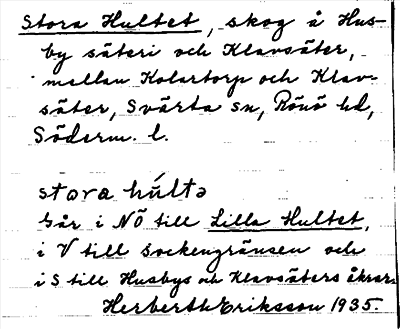 Stora Hultet, skog å Hus-
by säteri och Klavsäter,
mellan Kolartorp och Klav-
säter, Svärta sn, Rönö hd,
Söderm. l.
stora húltə
Går i NÖ till Lilla Hultet,
i V till sockengränsen och
i S till Husbys och Klavsäters åkrar.
Herberth Eriksson 1935